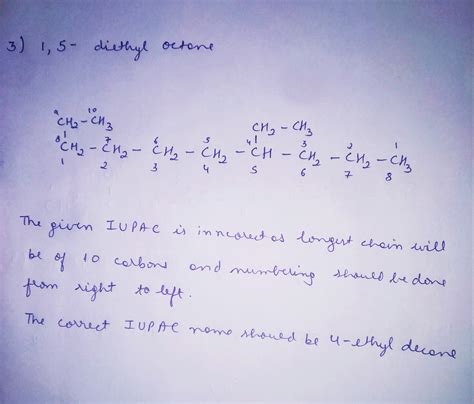 3) 1, 5 - diethyl octane
9 10
CH2 - CH3 CH2 - CH3
8 7 6 5 4 3 2 1
CH2 - CH2 - CH2 - CH2 - CH - CH2 - CH2 - CH3
1 2 3 4 5 6 7 8
The given IUPAC is inncorect as longest chain will
be of 10 carbons and numbering should be done
from right to left.
The correct IUPAC name should be 4-ethyl decane